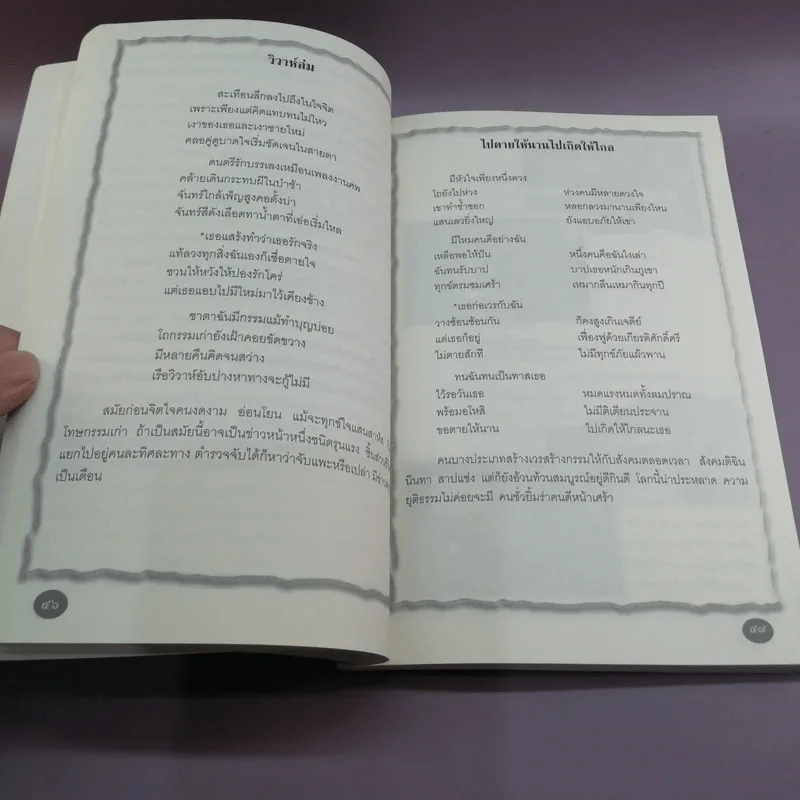 วิวาห์ล่ม
สะเทือนลึกลงไปถึงในใจจิต
เพราะเพียงแต่คิดแทบทนไม่ไหว
เงาของเธอและเงาชายใหม่
คลอคู่ดูบาดใจเริ่มชัดเจนในสายตา
ดนตรีรักบรรเลงเหมือนเพลงงานศพ
คล้ายเดินกระทบผีในป่าช้า
จันทร์ใกล้เพ็ญสูงคอตั้งบ่า
จันทร์สีดังเลือดทาน้ำตาที่เอ่อเริ่มไหล
*เธอแสร้งทำว่าเธอรักจริง
แท้ลวงทุกสิ่งฉันเองก็เชื่อตายใจ
ชวนให้หวังให้ปองรักใคร่
แต่เธอแอบไปมีใหม่มาไว้เคียงข้าง
ชาตาฉันมีกรรมแม้ทำบุญบ่อย
โถกรรมเก่ายังเฝ้าคอยขัดขวาง
มีหลายคืนคิดจนสว่าง
เรือวิวาห์อับปางหาทางจะกู้ไม่มี
สมัยก่อนจิตใจคนงดงาม อ่อนโยน แม้จะทุกข์ใจแสนสาหัส
โทษกรรมเก่า ถ้าเป็นสมัยนี้อาจเป็นข่าวหน้าหนึ่งชนิดรุนแรง
แยกไปอยู่คนละทิศละทาง ตำรวจจับได้ก็หาว่าจับแพะหรือเปล่า
เป็นเดือน
๔๖
ไปตายให้นานไปเกิดให้ไกล
มีหัวใจเพียงหนึ่งดวง
โถยังไปห่วง ห่วงคนมีหลายดวงใจ
เขาทำช้ำชอก หลอกลวงมานานเพียงไหน
แสนเลวยิ่งใหญ่ ยังแอบอภัยให้เขา
มีไหมคนดีอย่างฉัน
เหลือพอให้ปัน หนึ่งคนคือฉันโง่เง่า
ฉันทนรับบาป บาปเธอหนักเกินภูเขา
ทุกข์ตรมซมเศร้า เหมากลืนเหมากินทุกปี
*เธอก่อเวรกับฉัน
วางซ้อนซ้อนกัน ก็คงสูงเกินเจดีย์
แต่เธอก็อยู่ เฟื่องฟูด้วยเกียรติศักดิ์ศรี
ไม่ตายสักที ไม่มีทุกข์ภัยแผ้วพาน
ทนฉันทนเป็นทาสเธอ
ไว้รอวันเธอ หมดแรงหมดทั้งลมปราณ
พร้อมอโหสิ ไม่มีติเตียนประจาน
ขอตายให้นาน ไปเกิดให้ไกลนะเธอ
คนบางประเภทสร้างเวรสร้างกรรมให้กับสังคมตลอดเวลา สังคมติฉิน
นินทา สาปแช่ง แต่ก็ยังอ้วนท้วนสมบูรณ์อยู่ดีกินดี โลกนี้น่าประหลาด ความ
ยุติธรรมไม่ค่อยจะมี คนชั่วยิ้มร่าคนดีหน้าเศร้า
๔๗